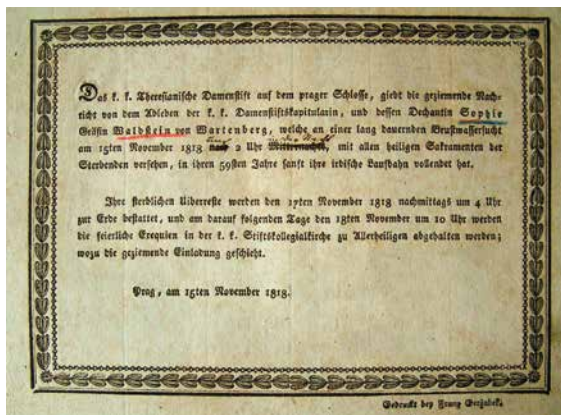 Das k. k. Theresianische Damenstift auf dem prager Schlosse, giebt die geziemende Nach-
richt von dem Ableben der k. k. Damenstiftskapitularin, und dessen Dechantin Sophie
Gräfin Waldstein von Wartenberg, welche an einer lang dauernden Brustwassersucht
am 15ten November 1818 nach 2 Uhr Mitternachts, mit allen heiligen Sakramenten der
Sterbenden versehen, in ihren 59sten Jahre sanft ihre irdische Laufbahn vollendet hat.
Ihre sterblichen Uiberreste werden den 17ten November 1818 nachmittags um 4 Uhr
zur Erde bestattet, und am darauf folgenden Tage den 18ten November um 10 Uhr werden
die feierliche Exequien in der k. k. Stiftskollegialkirche zu Allerheiligen abgehalten werden;
wozu die geziemende Einladung geschieht.
Prag, am 15ten November 1818.
Gedruckt bey Franz Geržabek.